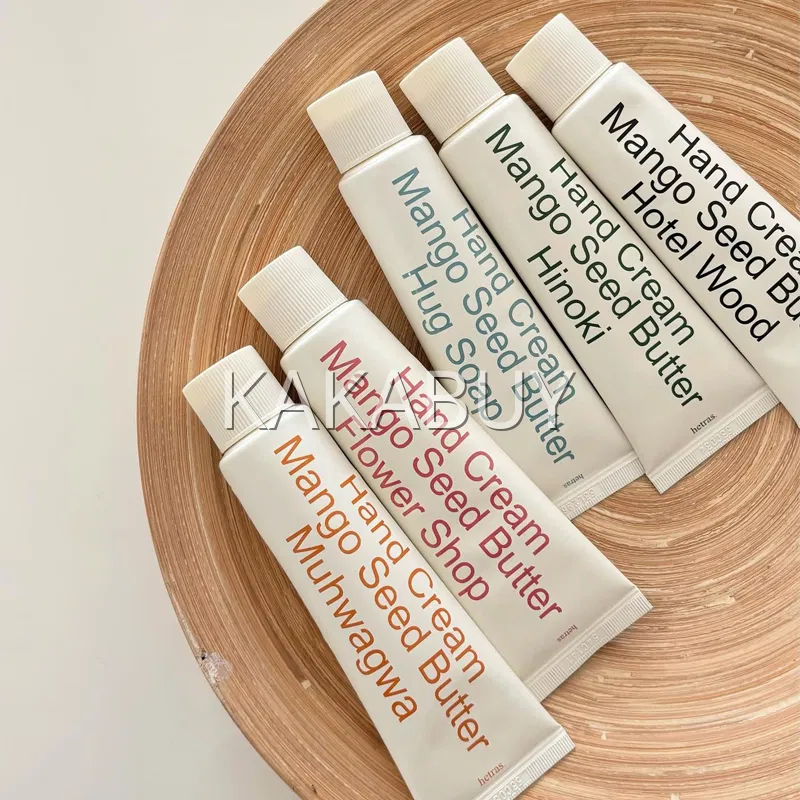 Hand Cream
Mango Seed Butter
Muhwagwa
hetras.
Hand Cream
Mango Seed Butter
Flower Shop
hetras.
Hand Cream
Mango Seed Butter
Hug Soap
hetras.
Hand Cream
Mango Seed Butter
Hinoki
hetras.
Hand Crea
Mango Seed Bu
Hotel Wood
KAKABUY